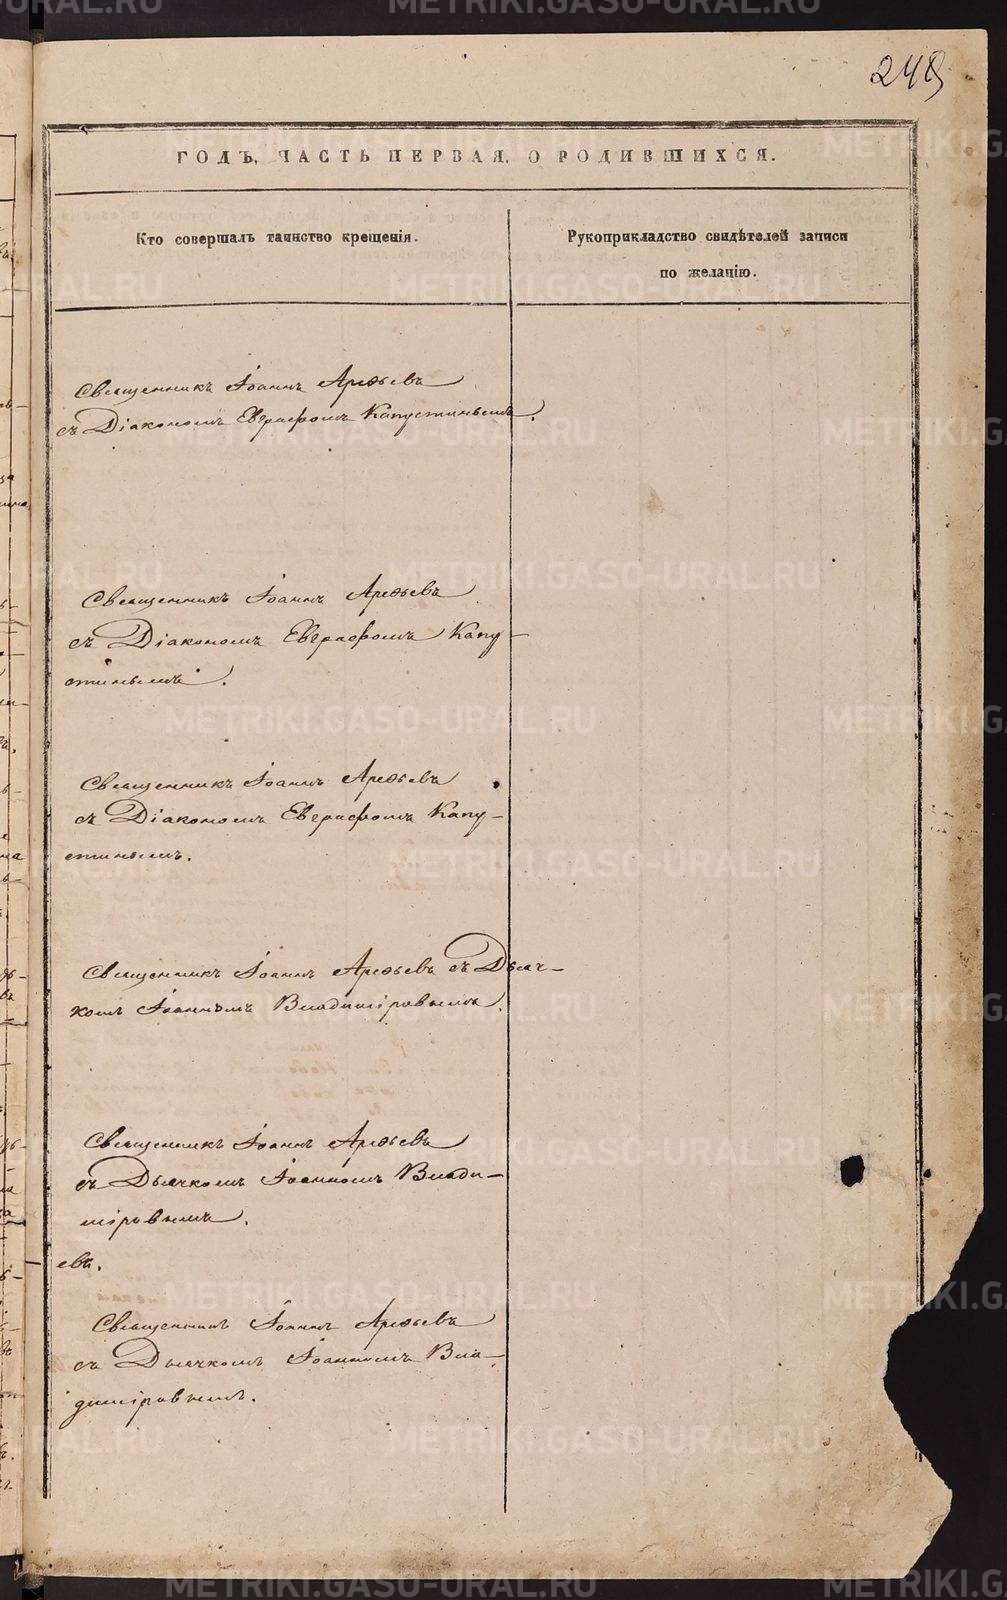 248
ГОДЪ, ЧАСТЬ ПЕРВАЯ, О РОДИВШИХСЯ.
Кто совершалъ таинство крещенія.
Рукоприкладство свидѣтелей записи
по желанію.
Священникъ Іоаннъ Арефьевъ
съ Діакономъ Евграфомъ Капустинымъ.
Священникъ Іоаннъ Арефьевъ
съ Діакономъ Евграфомъ Капу-
стинымъ.
Священникъ Іоаннъ Арефьевъ
съ Діакономъ Евграфомъ Капу-
стинымъ.
Священникъ Іоаннъ Арефьевъ съ Дьяч-
комъ Іоанномъ Владиміровымъ.
Священникъ Іоаннъ Арефьевъ
съ Дьячкомъ Іоанномъ Влади-
міровымъ.
евъ.
Священникъ Іоаннъ Арефьевъ
съ Дьячкомъ Іоанномъ Вла-
диміровымъ.
METRIKI.GASO-URAL.RU